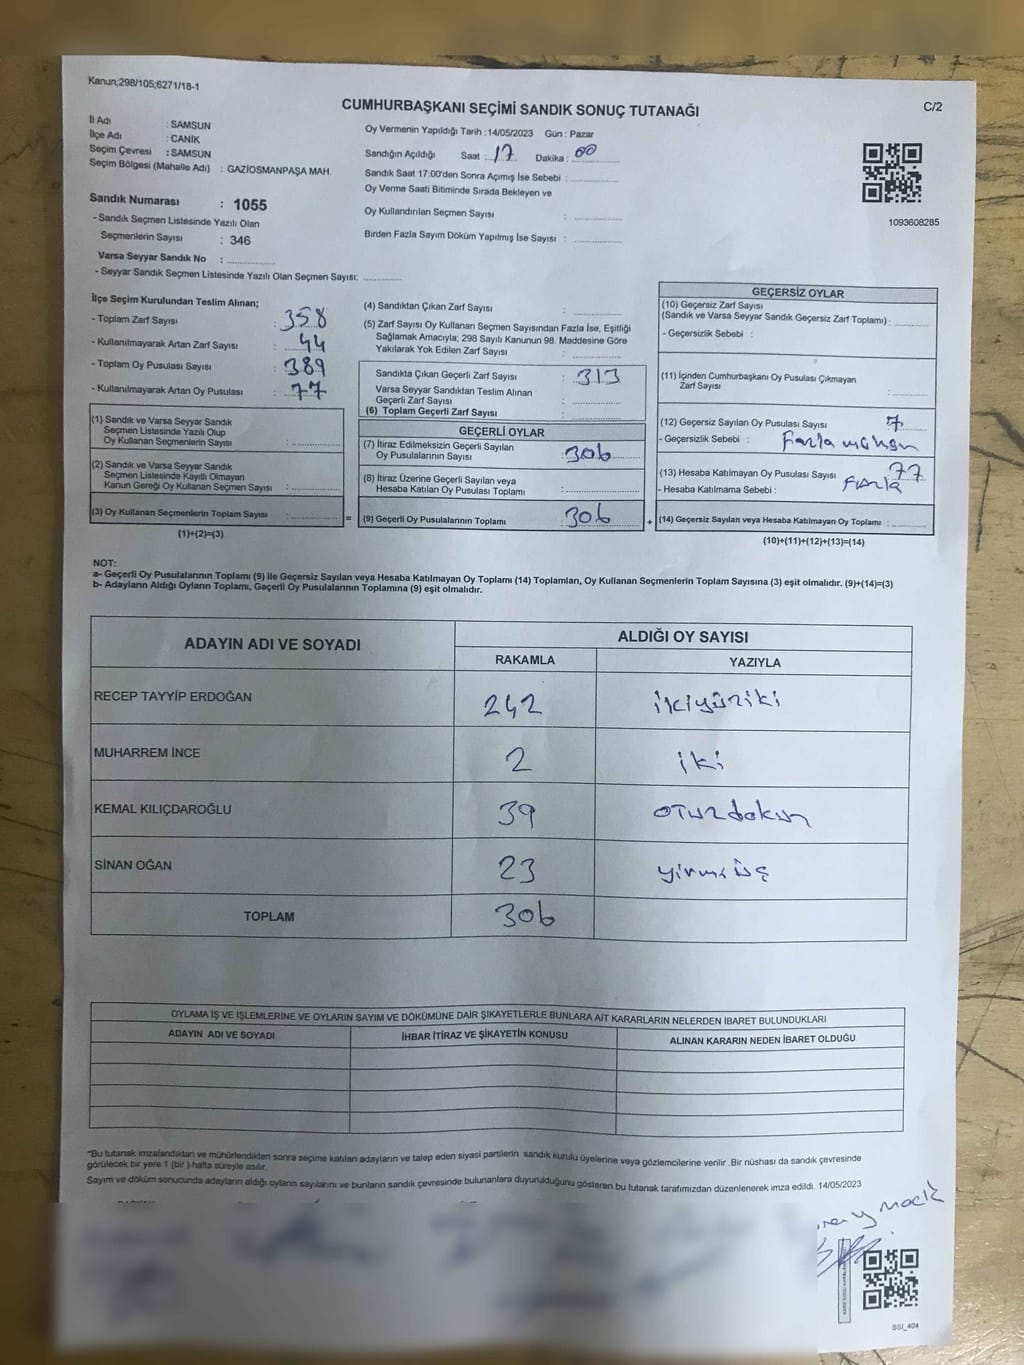 Kanun;298/105;6271/18-1
CUMHURBAŞKANI SEÇİMİ SANDIK SONUÇ TUTANAĞI
C/2
İl Adı : SAMSUN
İlçe Adı : CANİK
Seçim Çevresi : SAMSUN
Seçim Bölgesi (Mahalle Adı) : GAZİOSMANPAŞA MAH.
Oy Vermenin Yapıldığı Tarih :14/05/2023 Gün : Pazar
Sandığın Açıldığı Saat : 17 Dakika : 00
Sandık Saat 17:00'den Sonra Açımış İse Sebebi :
Oy Verme Saati Bitiminde Sırada Bekleyen ve
Oy Kullandırılan Seçmen Sayısı :
Birden Fazla Sayım Döküm Yapılmış İse Sayısı :
1093608285
Sandık Numarası : 1055
- Sandık Seçmen Listesinde Yazılı Olan
Seçmenlerin Sayısı : 346
Varsa Seyyar Sandık No :
- Seyyar Sandık Seçmen Listesinde Yazılı Olan Seçmen Sayısı:
İlçe Seçim Kurulundan Teslim Alınan;
- Toplam Zarf Sayısı : 358
- Kullanılmayarak Artan Zarf Sayısı : 44
- Toplam Oy Pusulası Sayısı : 389
- Kullanılmayarak Artan Oy Pusulası : 77
(1) Sandık ve Varsa Seyyar Sandık
Seçmen Listesinde Yazılı Olup
Oy Kullanan Seçmenlerin Sayısı :
(2) Sandık ve Varsa Seyyar Sandık
Seçmen Listesinde Kayıtlı Olmayan
Kanun Gereği Oy Kullanan Seçmen Sayısı :
(3) Oy Kullanan Seçmenlerin Toplam Sayısı :
(1)+(2)=(3)
=
(4) Sandıktan Çıkan Zarf Sayısı :
(5) Zarf Sayısı Oy Kullanan Seçmen Sayısından Fazla İse, Eşitliği
Sağlamak Amacıyla; 298 Sayılı Kanunun 98. Maddesine Göre
Yakılarak Yok Edilen Zarf Sayısı :
Sandıkta Çıkan Geçerli Zarf Sayısı : 313
Varsa Seyyar Sandıktan Teslim Alınan
Geçerli Zarf Sayısı :
(6) Toplam Geçerli Zarf Sayısı :
GEÇERLİ OYLAR
(7) İtiraz Edilmeksizin Geçerli Sayılan
Oy Pusulalarının Sayısı : 306
(8) İtiraz Üzerine Geçerli Sayılan veya
Hesaba Katılan Oy Pusulası Toplamı :
(9) Geçerli Oy Pusulalarının Toplamı : 306
+
GEÇERSİZ OYLAR
(10) Geçersiz Zarf Sayısı
(Sandık ve Varsa Seyyar Sandık Geçersiz Zarf Toplamı) :
- Geçersizlik Sebebi :
(11) İçinden Cumhurbaşkanı Oy Pusulası Çıkmayan
Zarf Sayısı :
(12) Geçersiz Sayılan Oy Pusulası Sayısı : 7
- Geçersizlik Sebebi : Fazla
(13) Hesaba Katılmayan Oy Pusulası Sayısı : 77
- Hesaba Katılmama Sebebi : Fazla
(14) Geçersiz Sayılan veya Hesaba Katılmayan Oy Toplamı :
(10)+(11)+(12)+(13)=(14)
NOT:
a- Geçerli Oy Pusulalarının Toplamı (9) ile Geçersiz Sayılan veya Hesaba Katılmayan Oy Toplamı (14) Toplamları, Oy Kullanan Seçmenlerin Toplam Sayısına (3) eşit olmalıdır. (9)+(14)=(3)
b- Adayların Aldığı Oyların Toplamı, Geçerli Oy Pusulalarının Toplamına (9) eşit olmalıdır.
ADAYIN ADI VE SOYADI
ALDIĞI OY SAYISI
RAKAMLA YAZIYLA
RECEP TAYYİP ERDOĞAN 242 ikiyüziki
MUHARREM İNCE 2 iki
KEMAL KILIÇDAROĞLU 39 oturdokuz
SİNAN OĞAN 23 yirmi üç
TOPLAM 306
OYLAMA İŞ VE İŞLEMLERİNE VE OYLARIN SAYIM VE DÖKÜMÜNE DAİR ŞİKAYETLERLE BUNLARA AİT KARARLARIN NELERDEN İBARET BULUNDUKLARI
ADAYIN ADI VE SOYADI İHBAR İTİRAZ VE ŞİKAYETİN KONUSU ALINAN KARARIN NEDEN İBARET OLDUĞU
*Bu tutanak imzalandıktan ve mühürlendikten sonra seçime katılan adayların ve talep eden siyasi partilerin sandık kurulu üyelerine veya gözlemcilerine verilir .Bir nüshası da sandık çevresinde
görülecek bir yere 1 (bir ) hafta süreyle asılır.
Sayım ve döküm sonucunda adayların aldığı oyların sayılarını ve bunların sandık çevresinde bulunanlara duyurulduğunu gösteren bu tutanak tarafımızdan düzenlenerek imza edildi. 14/05/2023
SSI_404